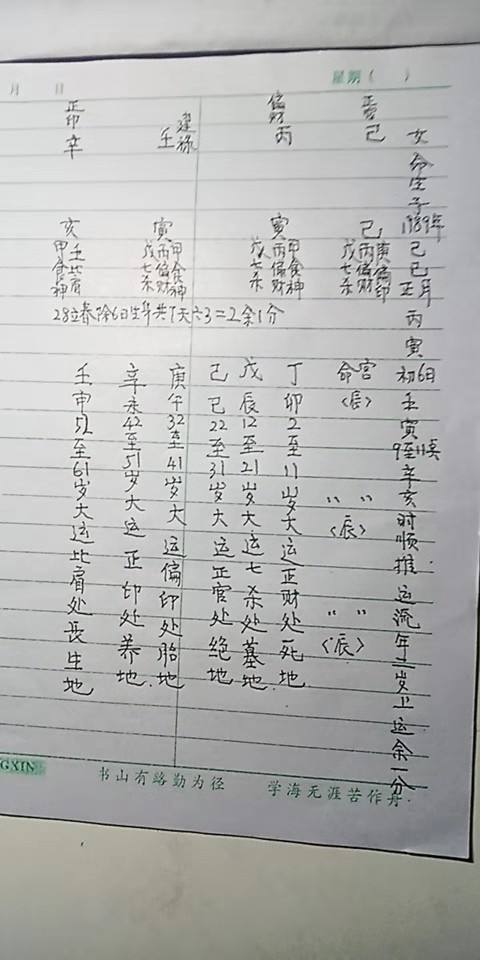 月 日 星期( )
女命生于1989年己巳正月丙寅初6日壬寅9至11点辛亥时顺推运流年二岁上运余一分
己
巳
庚偏印
丙偏财
戊七杀
命宫〈辰〉
〃 〃〈辰〉
〃 〃〈辰〉
偏财
丙
寅
甲食神
戊七杀
建禄
壬
寅
甲食神
丙偏财
戊七杀
正印
辛
亥
壬比肩
甲食神
28立春除6日生年共7天六3=2余1分
丁卯2至11岁大运正财处死地
戊辰12至21岁大运七杀处墓地.
己巳22至31岁大运正官处绝地
庚午32至41岁大运偏印处胎地
辛未42至51岁大运正印处养地.
壬申52至61岁大运比肩处长生地
GXIN 书山有路勤为径 学海无涯苦作舟.